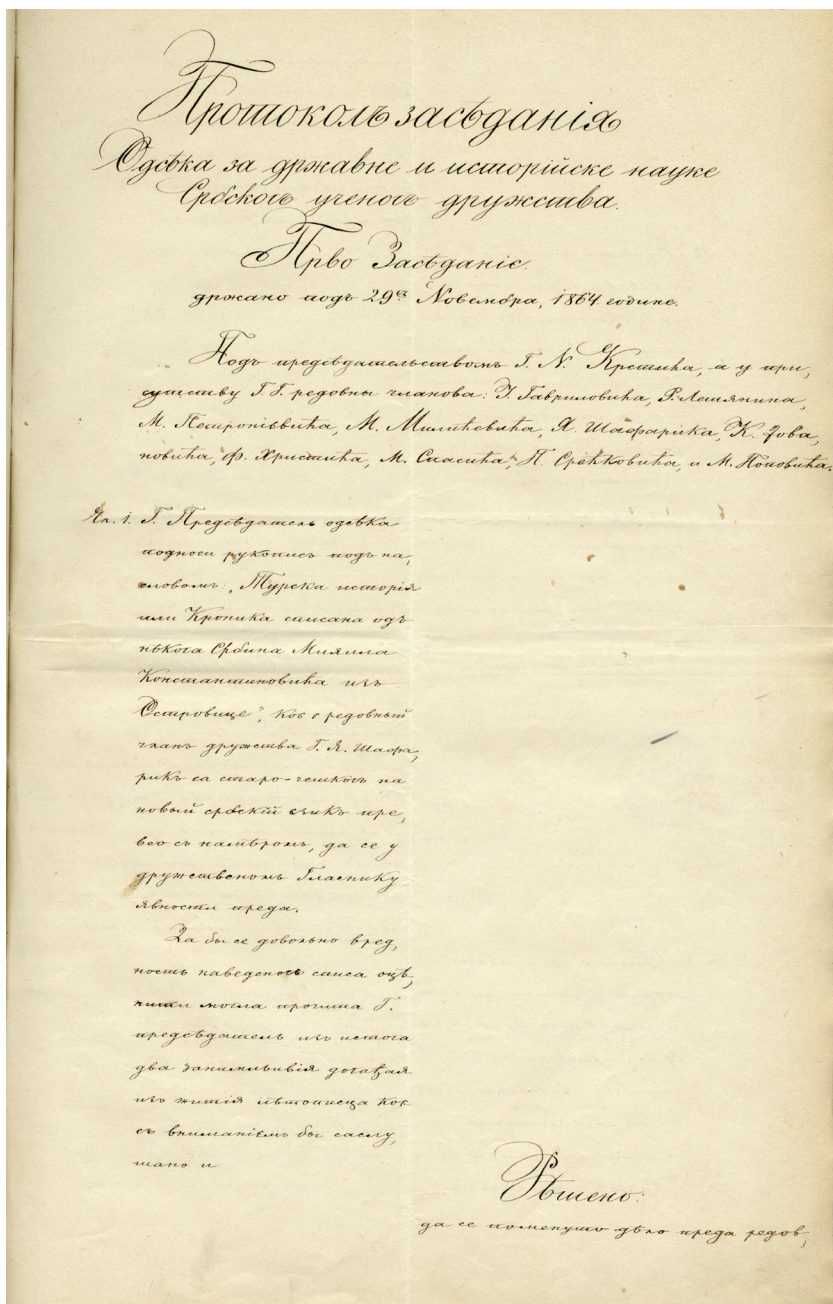 Протоколъ засѣданія
Одсѣка за државне и исторійске науке
Србскогъ ученогъ дружства.
Прво Засѣданіе.
држано подъ 29ᵍᵃ Новембра, 1864. године.
Подъ предсѣдательствомъ Г. Н. Крстића, а у при,
суству Г. Г. редовны чланова: I. Гавриловића, Р. Лешянина,
М. Петроніевића, М. Милићевића, Я. Шафарика, К. Јова,
новића, Ф. Христића, М. Спасића, П. Срећковића, и М. Поповића.
Чл. 1. Г. Предсѣдатель одсѣка
подноси рукопись подъ на,
словомъ: „Турска исторія
или Кроника списана одъ
нѣкога Србина Михаила
Константиновића изъ
Островице", кое є редовный
чланъ дружства Г. Я. Шафа,
рикъ са старо-чешкогъ на
новый србскій єзикъ пре,
вео съ намѣромъ, да се у
дружственомъ Гласнику
явности преда.
Да бы се довольно вред,
ность наведеногъ списа оцѣ,
нити могла прочита Г.
предсѣдатель изъ истога
два занимльивія догађая
изъ житія лѣтописца кое
съ вниманіемъ бы саслу,
шано и
Рѣшено:
да се поменуто дѣло преда редов,